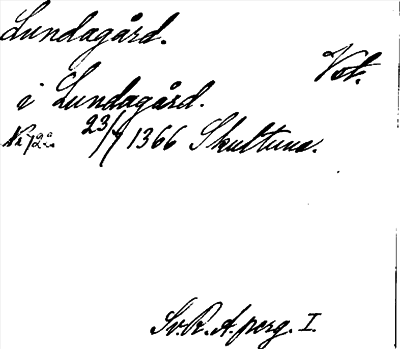 Lundagård.
Vet.
i Lundagård.
23/7 1366 Skultuna.
Sv.R.A. perg. I.